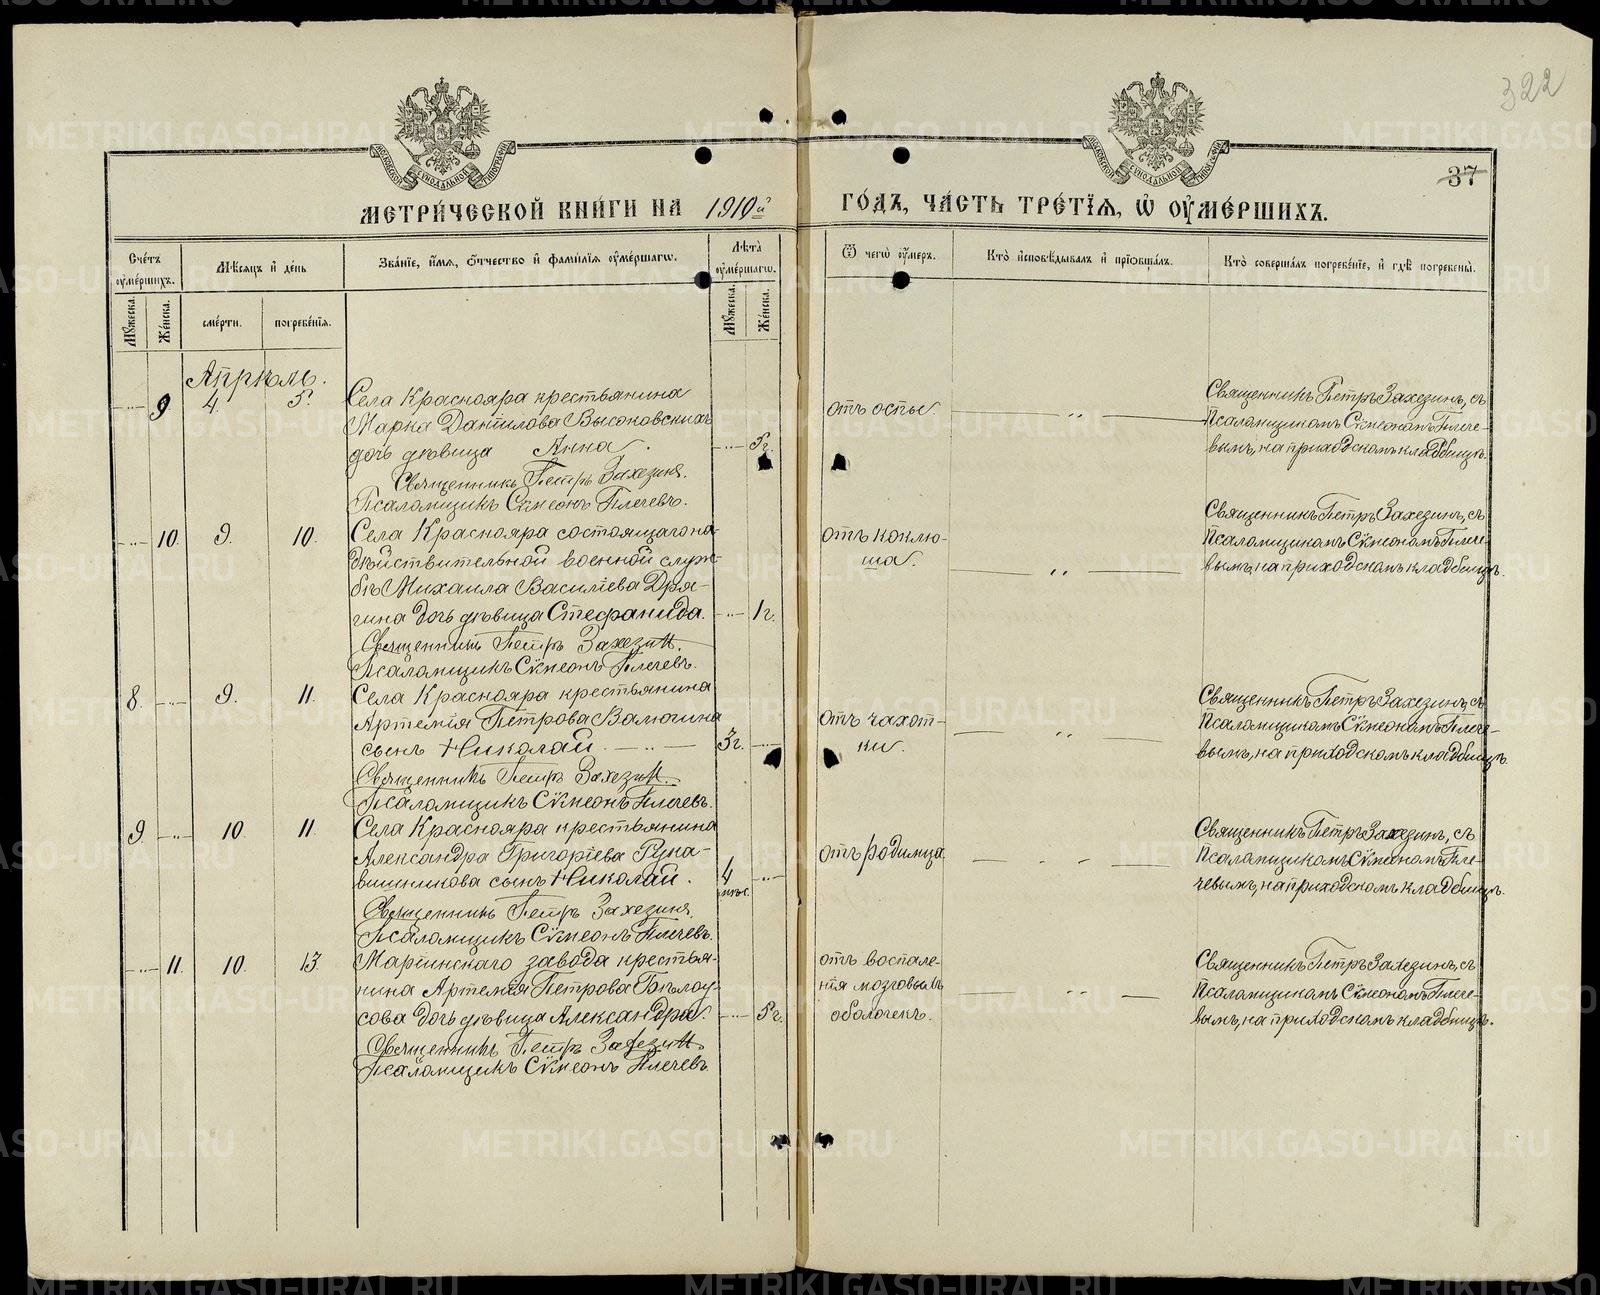 322
37
МЕТРИ́ЧЕСКОЙ КНИ́ГИ НА 1910й
ГО́ДЪ, ЧА́СТЬ ТРЕ́ТІЯ, Ѡ ОУМЕ́РШИХЪ.
Сче́тъ оумершихъ.
Мѣсяцъ и де́нь
Зва́ніе, и́мя, о́тчество и фами́лія оуме́ршагѡ.
Лѣта̀ оуме́ршагѡ.
Ѿ чегѡ̀ оу́меръ.
Кто̀ исповѣ́дывалъ и пріобща́лъ.
Кто̀ соверша́лъ погребе́ніе, и гдѣ̀ погребены̀.
Мꙋжеска.
Же́нска.
сме́рти.
погребе́нія.
Мꙋжеска.
Же́нска.
Апрѣль.
9. 4. 5.
Села Краснояра крестьянина
Марка Данилова Высоковскихъ
дочь дѣвица Анна.
5 г.
Священникъ Петръ Захезинъ.
Псаломщикъ Сѵмеонъ Плечевъ.
отъ оспы
Священникъ Петръ Захезинъ, съ
Псаломщикомъ Сѵмеономъ Плече-
вымъ, на приходскомъ кладбищѣ.
10. 9. 10.
Села Краснояра состоящаго на
дѣйствительной военной служ-
бѣ Михаила Василіева Дря-
гина дочь дѣвица Стефанида.
1 г.
Священникъ Петръ Захезинъ.
Псаломщикъ Сѵмеонъ Плечевъ.
отъ коклю-
ша.
Священникъ Петръ Захезинъ, съ
Псаломщикомъ Сѵмеономъ Плече-
вымъ, на приходскомъ кладбищѣ.
8. 9. 11.
Села Краснояра крестьянина
Артемія Петрова Валюгина
сынъ Николай.
3 г.
Священникъ Петръ Захезинъ.
Псаломщикъ Сѵмеонъ Плечевъ.
отъ чахот-
ки.
Священникъ Петръ Захезинъ, съ
Псаломщикомъ Сѵмеономъ Плече-
вымъ, на приходскомъ кладбищѣ.
9. 10. 11.
Села Краснояра крестьянина
Александра Григоріева Рука-
вишникова сынъ Николай.
4 мѣс.
Священникъ Петръ Захезинъ.
Псаломщикъ Сѵмеонъ Плечевъ.
отъ родимца.
Священникъ Петръ Захезинъ, съ
Псаломщикомъ Сѵмеономъ Пле-
чевымъ, на приходскомъ кладбищѣ.
11. 10. 13.
Маріинскаго завода крестья-
нина Артемія Петрова Бѣлоу-
сова дочь дѣвица Александра.
5 г.
Священникъ Петръ Захезинъ
Псаломщикъ Сѵмеонъ Плечевъ.
отъ воспале-
нія мозговыхъ
оболочекъ.
Священникъ Петръ Захезинъ, съ
Псаломщикомъ Сѵмеономъ Плече-
вымъ, на приходскомъ кладбищѣ.
METRIKI.GASO-URAL.RU